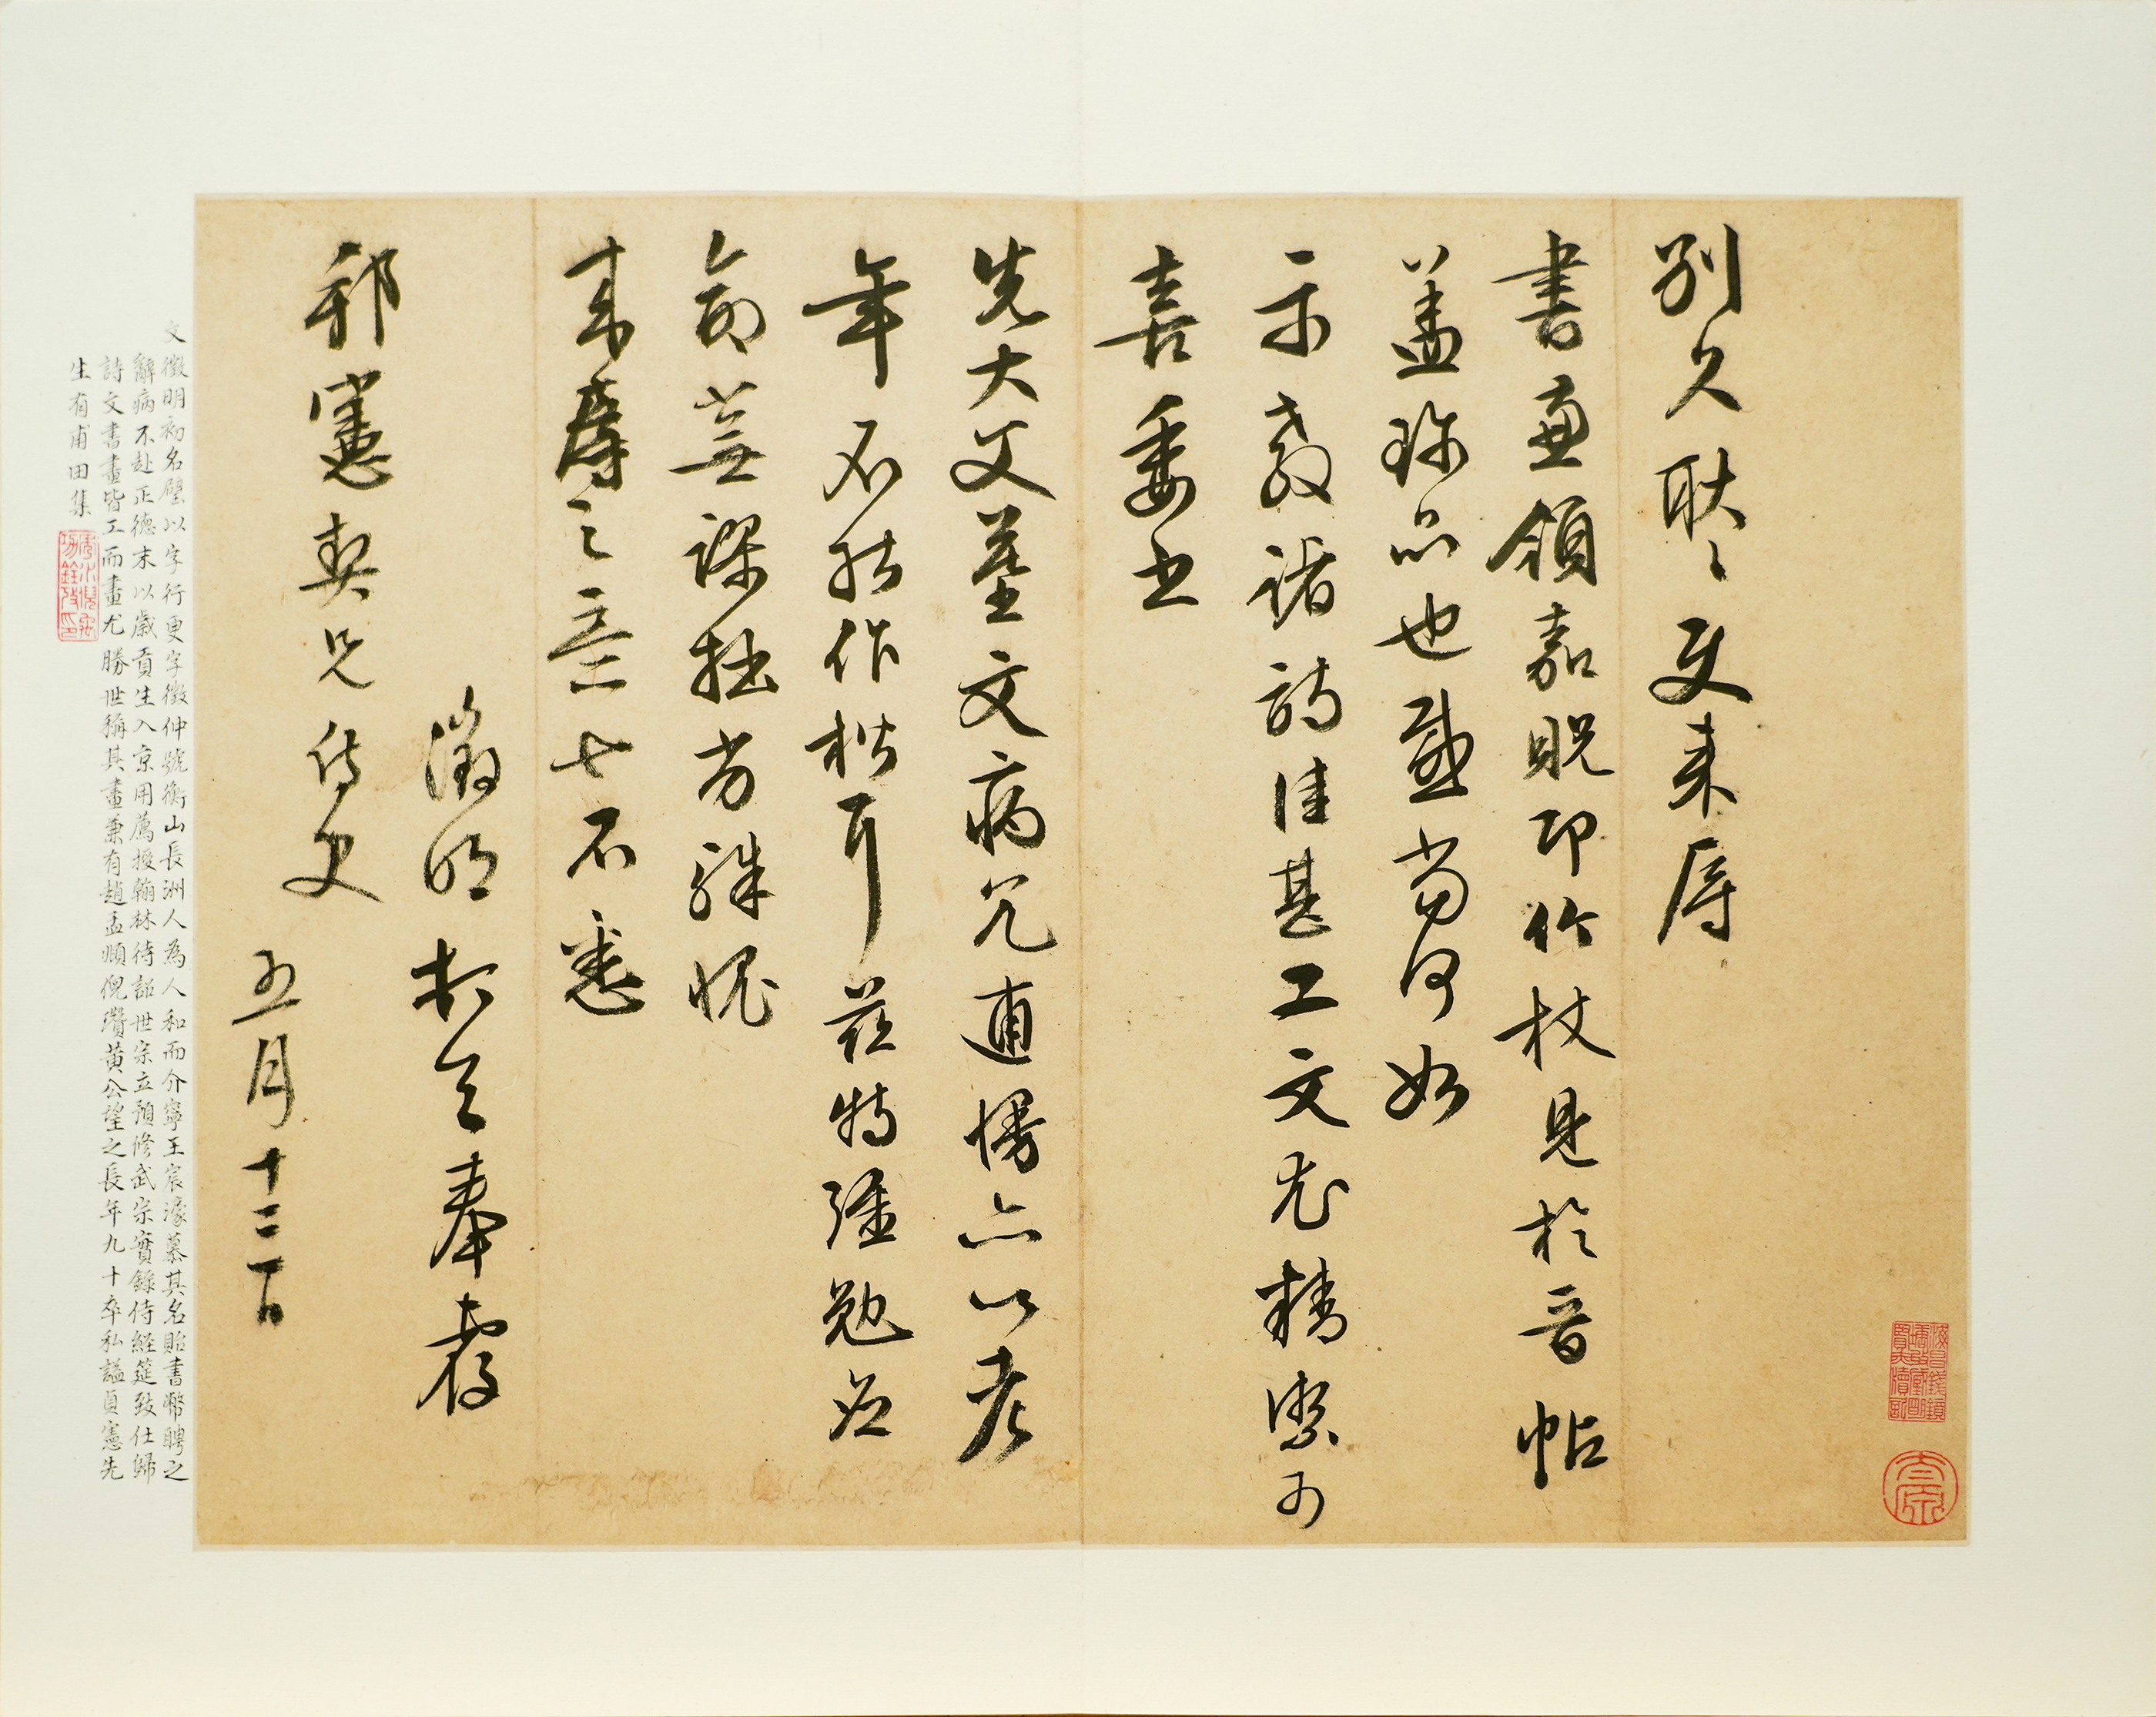 別久耿〻更来辱
書亟領嘉貺卭竹杖見於晉帖
盖珍品也感當何如
示教諸詩佳甚工文尤精密可
喜委书
先大父墓文病冗連慢亦以老
年不能作楷耳茲特彊勉从
命荒謬拙劣殊愧
来辱之意亡不悉
徵明拜具奉覆
邦憲契兄侍史
五月十二日
文徵明初名璧以字行更字徵仲號衡山長洲人為人和而介寧王宸濠慕其名貽書幣聘之
辭病不赴正德末以歲貢生入京用薦授翰林待詔世宗立預修武宗實錄侍經筵致仕歸
詩文書畫皆工而畫尤勝世稱其畫兼有趙孟頫倪瓚黃公望之長年九十卒私謚貞憲先
生有甫田集